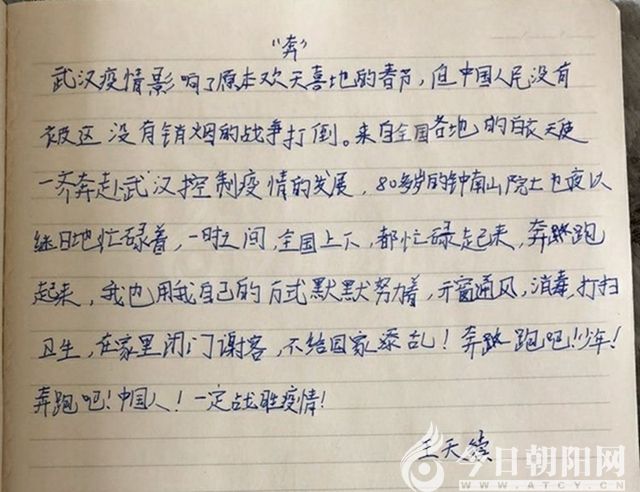 “奔”
武汉疫情影响了原本欢天喜地的春节，但中国人民没有
被这没有销烟的战争打倒。来自全国各地的白衣天使
一齐奔赴武汉控制疫情的发展，80多岁的钟南山院士也夜以
继日地忙碌着，一时之间，全国上下，都忙碌起来，奔跑
起来，我也用我自己的方式默默努力着，开窗通风，消毒，打扫
卫生，在家里闭门谢客，不给国家添乱！奔跑吧！少年！
奔跑吧！中国人！一定战胜疫情！
王天
今日朝阳网
WWW.ATCY.CN